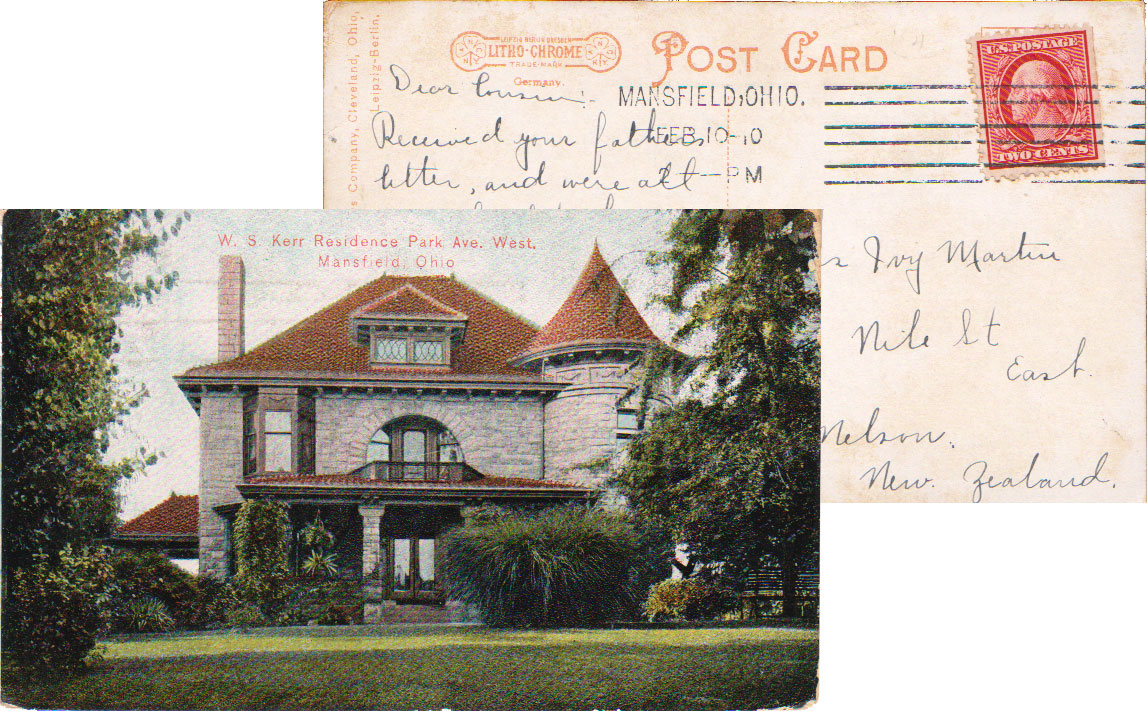 s Company, Cleveland, Ohio,
Leipzig-Berlin.
LEIPZIG BERLIN DRESDEN
LITHO-CHROME
TRADE-MARK
Germany.
POST CARD
U.S. POSTAGE
TWO CENTS
MANSFIELD, OHIO.
FEB 10-10
2 - PM
Dear Cousin:-
Received your fathers
letter, and were all
s Ivy Martin
Nile St
East.
Nelson.
New. Zealand.
W. S. Kerr Residence Park Ave. West.
Mansfield, Ohio